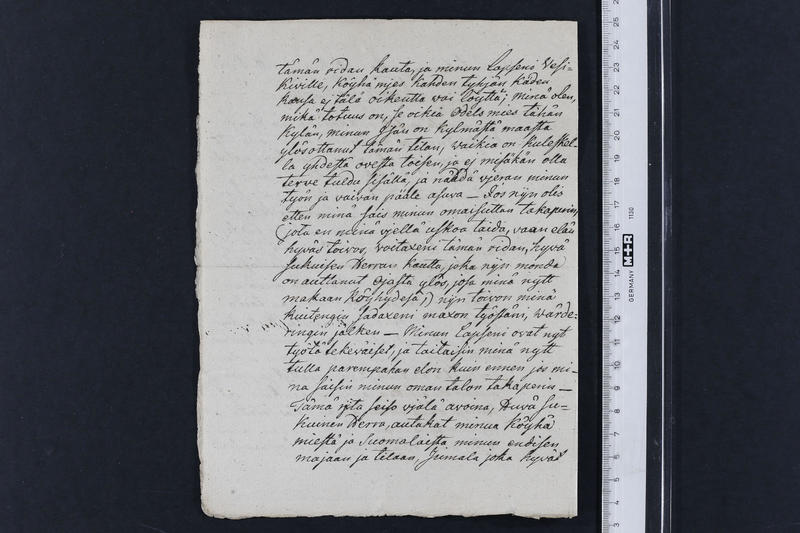 tämän ridan kautta, ja minun Lapseni Vesi-
kiville, köyhä mies kahden tyhjän käden
kansa ej tälä oikeutta vai löyttä; minä olen,
mikä totuus on, se oikia Odels mies tähän
kylän, minun Isän on kylmästä maasta
ylösottanut tämän tilan, waikia on kuleskel-
la yhdestä ovesta toisen, ja ej misäkän olla
terve tuldu sisällä, ja nähdä vjeran minun
työn ja vaivan pääle asuva — Jos nijn olis
etten minä sais minun omaisuttan takaperin,
(jota en minä vjellä uskoa taida, vaan elän
hyväs toivos, woitaxeni tämän ridan, hyvä
sukuisen Herran kautta, joka nijn monda
on auttanut Ojasta ylös, josa minä nytt
makaan köyhydesä,) nijn toivon minä
kuitengin sadaxeni maxon työstäni, wärde-
ringin jälken — Minun Lapseni ovat nyt
työtä tekeväiset, ja taitaisin minä nytt
tulla parempahan elon kuin ennen jos mi-
nä saisin minun oman talon takaperin —
Tämä rita seiso vjälä avoina, Huvä su-
kuinen Herra, autakat minua köyhä
miestä ja Suomalaista minun endisen
majaan ja tilaan, Jumala joka hyväs
1130
M+R
GERMANY
3 4 5 6 7 8 9 10 11 12 13 14 15 16 17 18 19 20 21 22 23 24 25